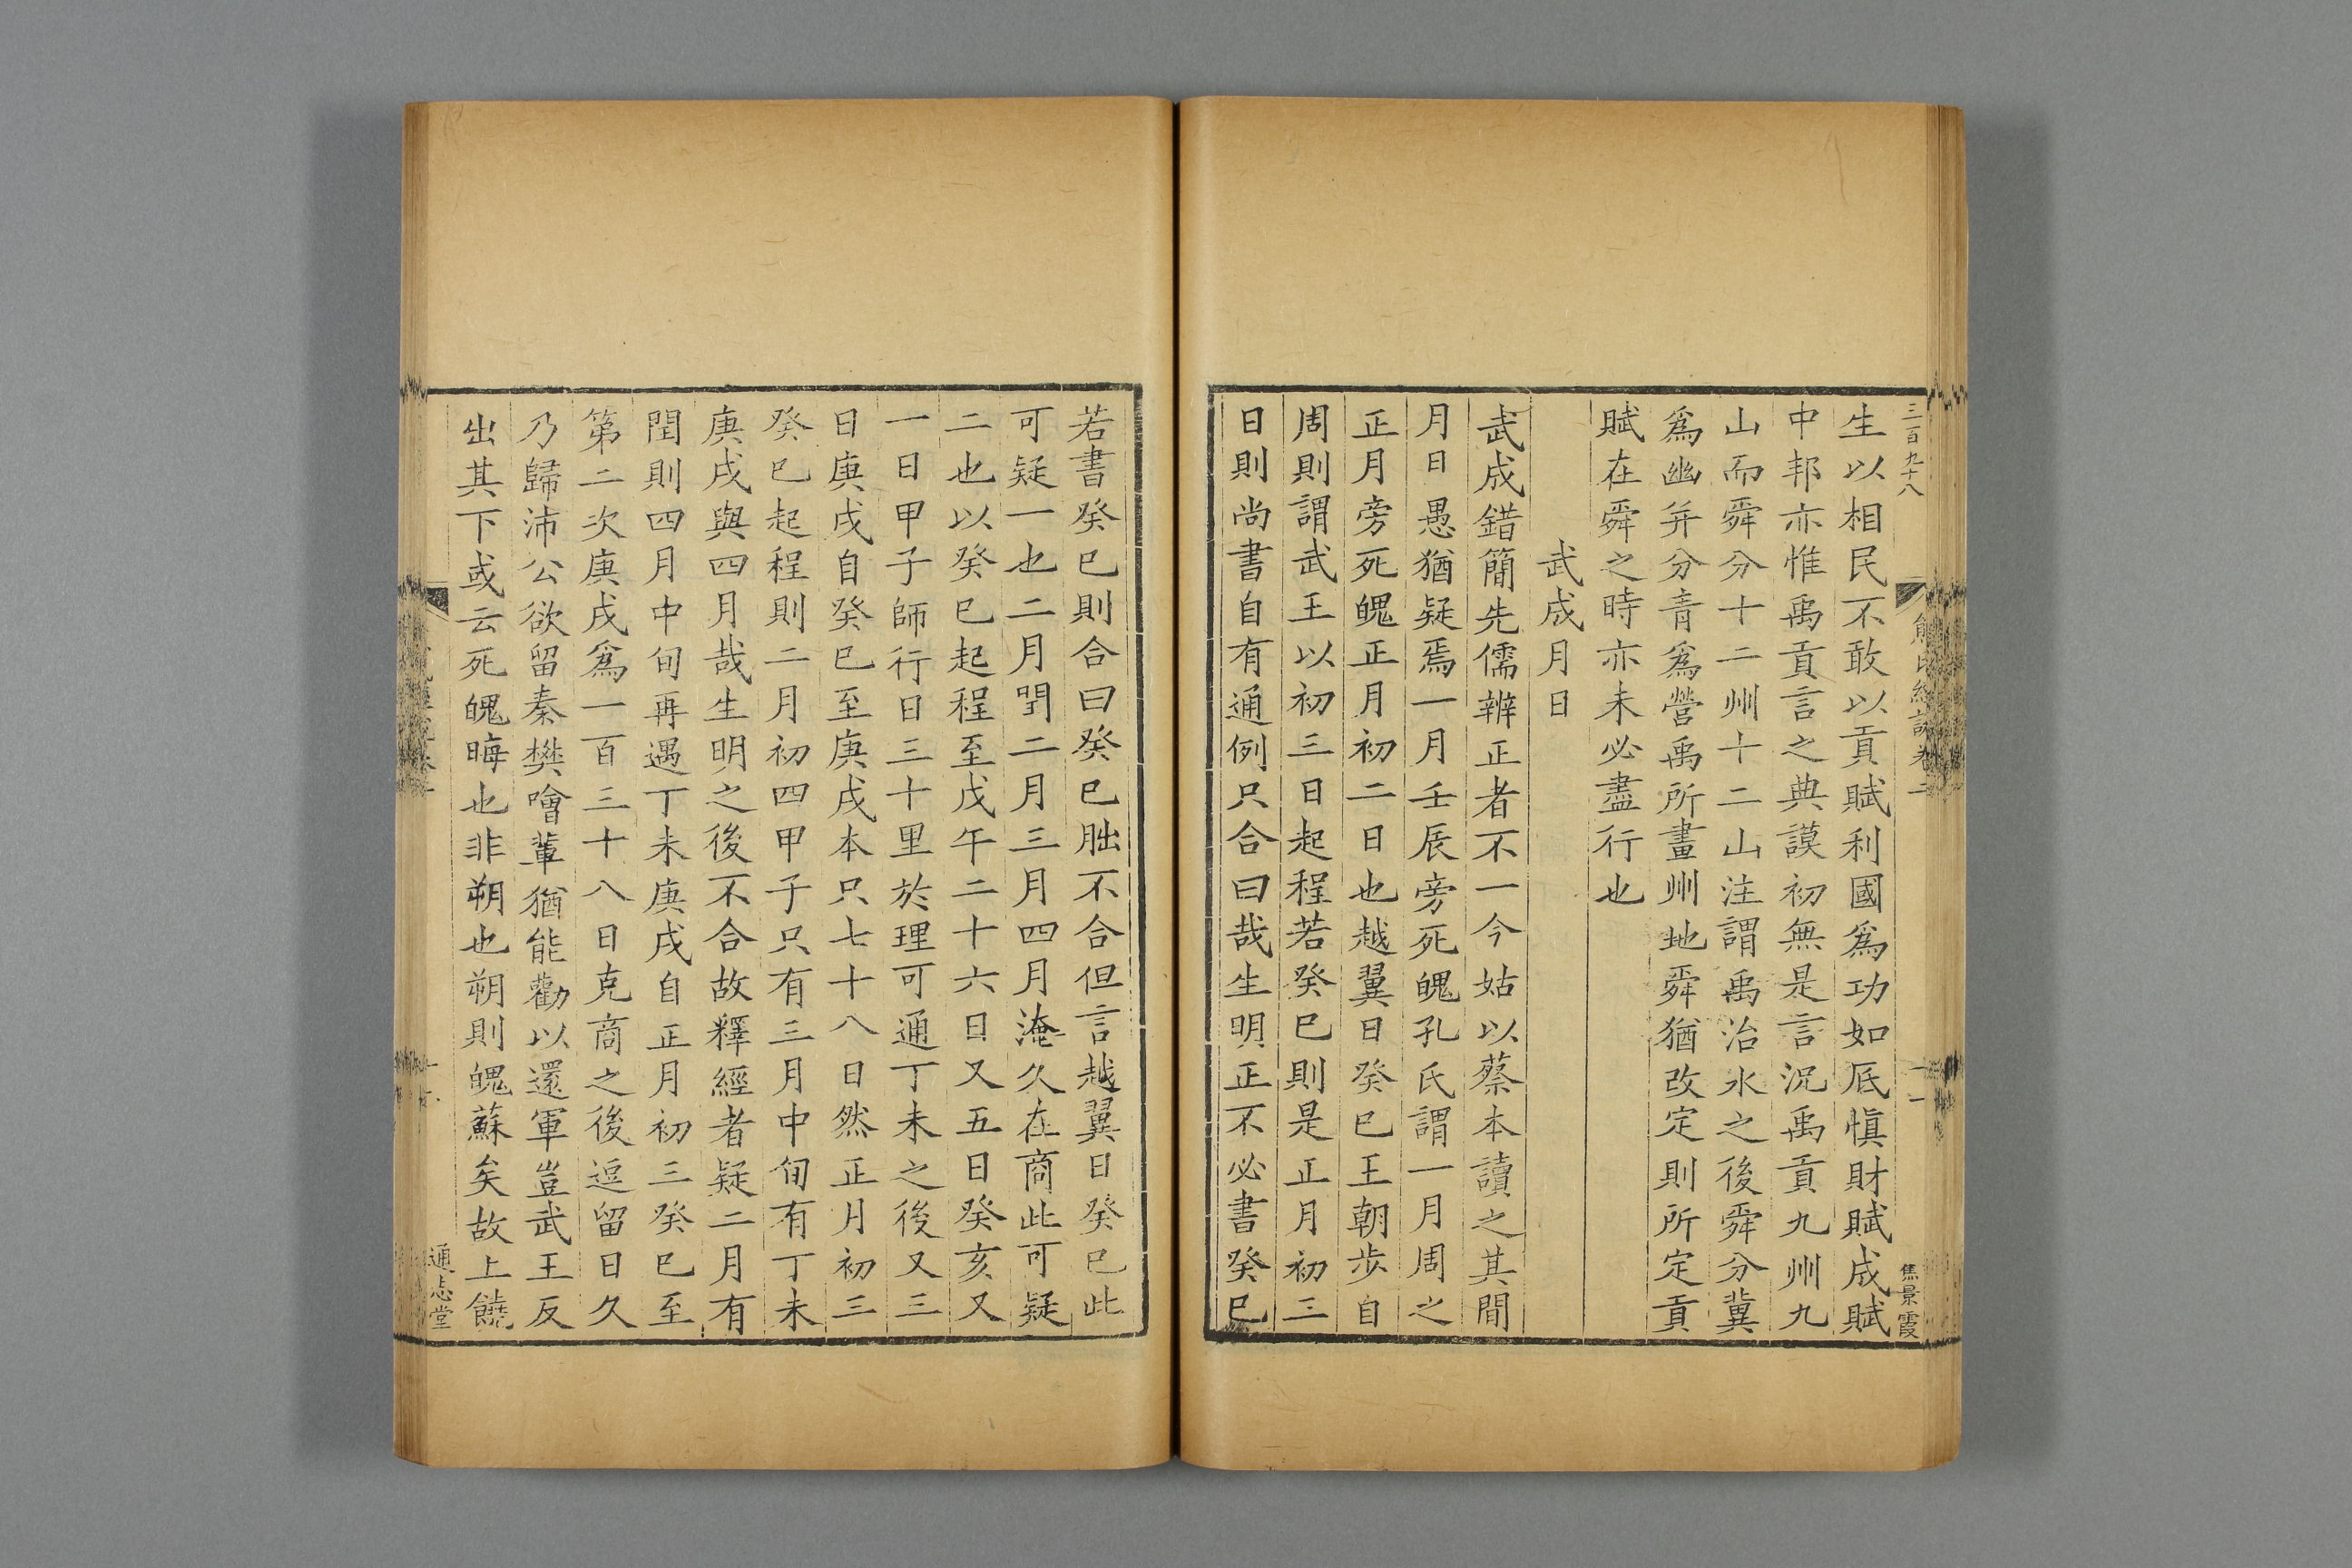 三百九十八
熊氏經說卷二
焦景霞
生以相民不敢以貢賦利國爲功如厎愼財賦成賦
中邦亦惟禹貢言之典謨初無是言况禹貢九州九
山而舜分十二州十二山注謂禹治水之後舜分冀
爲幽并分青爲營禹所畫州地舜猶改定則所定貢
賦在舜之時亦未必盡行也
武成月日
武成錯簡先儒辨正者不一今姑以蔡本讀之其間
月日愚猶疑焉一月壬辰旁死魄孔氏謂一月周之
正月旁死魄正月初二日也越翼日癸巳王朝步自
周則謂武王以初三日起程若癸巳則是正月初三
日則尚書自有通例只合曰哉生明正不必書癸巳
若書癸巳則合曰癸巳朏不合但言越翼日癸巳此
可疑一也二月閏二月三月四月淹久在商此可疑
二也以癸巳起程至戊午二十六日又五日癸亥又
一日甲子師行日三十里於理可通丁未之後又三
日庚戌自癸巳至庚戌本只七十八日然正月初三
癸巳起程則二月初四甲子只有三月中旬有丁未
庚戌與四月哉生明之後不合故釋經者疑二月有
閏則四月中旬再遇丁未庚戌自正月初三癸巳至
第二次庚戌爲一百三十八日克商之後逗留日久
乃歸沛公欲留秦樊噲輩猶能勸以還軍豈武王反
出其下或云死魄晦也非朔也朔則魄蘇矣故上饒
通志堂